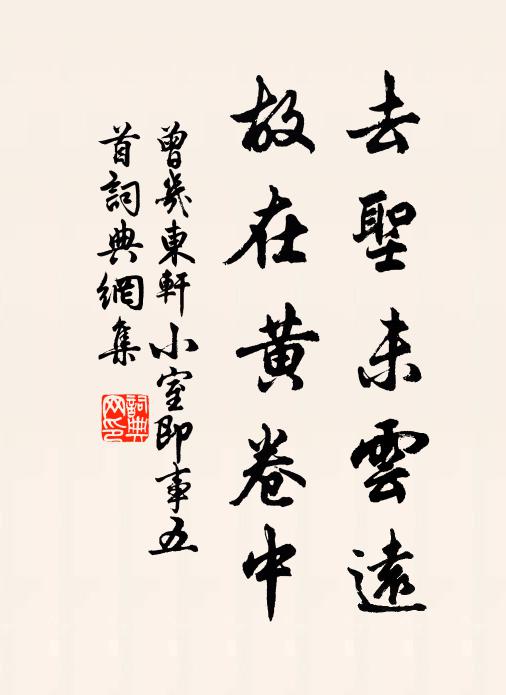 去聖未雲遠
故在黃卷中
曾幾東軒小室即事五
首詞典網集
詞典网印